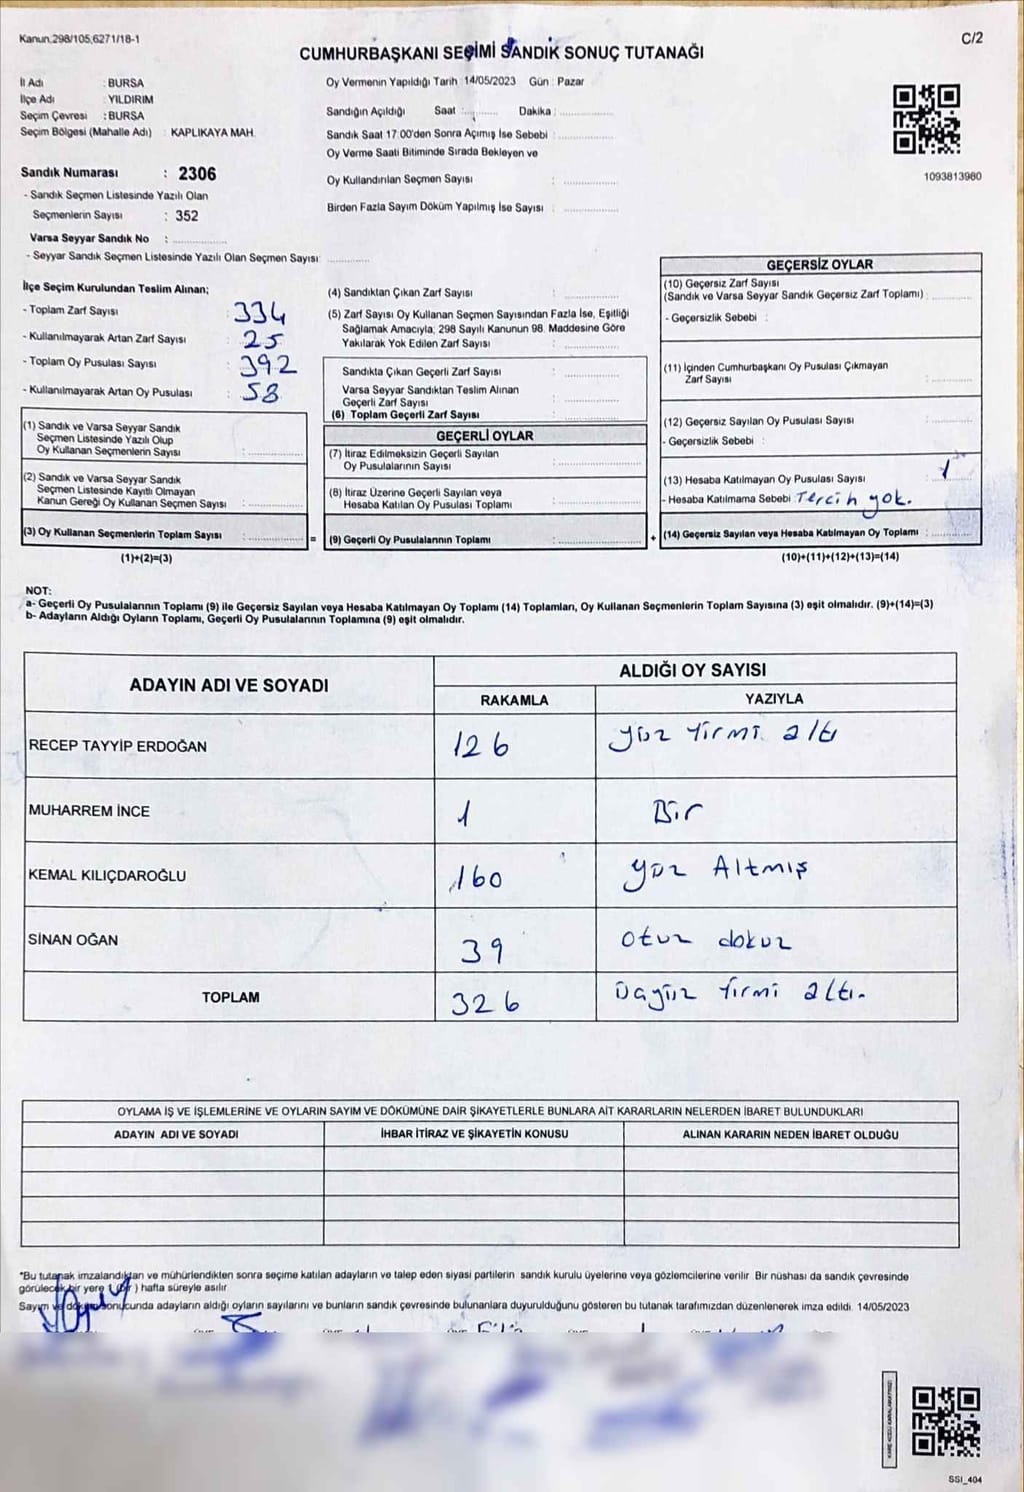 Kanun.298/105,6271/18-1
C/2
CUMHURBAŞKANI SEÇİMİ SANDIK SONUÇ TUTANAĞI
İl Adı : BURSA
İlçe Adı : YILDIRIM
Seçim Çevresi : BURSA
Seçim Bölgesi (Mahalle Adı) : KAPLIKAYA MAH.
Oy Vermenin Yapıldığı Tarih : 14/05/2023 Gün : Pazar
Sandığın Açıldığı Saat : Dakika :
Sandık Saat 17:00'den Sonra Açımış İse Sebebi :
Oy Verme Saati Bitiminde Sırada Bekleyen ve
Oy Kullandırılan Seçmen Sayısı :
Birden Fazla Sayım Döküm Yapılmış İse Sayısı :
1093813980
Sandık Numarası : 2306
- Sandık Seçmen Listesinde Yazılı Olan
Seçmenlerin Sayısı : 352
Varsa Seyyar Sandık No :
- Seyyar Sandık Seçmen Listesinde Yazılı Olan Seçmen Sayısı:
İlçe Seçim Kurulundan Teslim Alınan;
- Toplam Zarf Sayısı : 334
- Kullanılmayarak Artan Zarf Sayısı : 25
- Toplam Oy Pusulası Sayısı : 392
- Kullanılmayarak Artan Oy Pusulası : 58
(1) Sandık ve Varsa Seyyar Sandık
Seçmen Listesinde Yazılı Olup
Oy Kullanan Seçmenlerin Sayısı :
(2) Sandık ve Varsa Seyyar Sandık
Seçmen Listesinde Kayıtlı Olmayan
Kanun Gereği Oy Kullanan Seçmen Sayısı :
(3) Oy Kullanan Seçmenlerin Toplam Sayısı : =
(1)+(2)=(3)
(4) Sandıktan Çıkan Zarf Sayısı :
(5) Zarf Sayısı Oy Kullanan Seçmen Sayısından Fazla İse, Eşitliği
Sağlamak Amacıyla, 298 Sayılı Kanunun 98. Maddesine Göre
Yakılarak Yok Edilen Zarf Sayısı :
Sandıkta Çıkan Geçerli Zarf Sayısı :
Varsa Seyyar Sandıktan Teslim Alınan
Geçerli Zarf Sayısı :
(6) Toplam Geçerli Zarf Sayısı :
GEÇERLİ OYLAR
(7) İtiraz Edilmeksizin Geçerli Sayılan
Oy Pusulalarının Sayısı :
(8) İtiraz Üzerine Geçerli Sayılan veya
Hesaba Katılan Oy Pusulası Toplamı :
(9) Geçerli Oy Pusulalarının Toplamı : +
GEÇERSİZ OYLAR
(10) Geçersiz Zarf Sayısı
(Sandık ve Varsa Seyyar Sandık Geçersiz Zarf Toplamı) :
- Geçersizlik Sebebi :
(11) İçinden Cumhurbaşkanı Oy Pusulası Çıkmayan
Zarf Sayısı :
(12) Geçersiz Sayılan Oy Pusulası Sayısı :
- Geçersizlik Sebebi :
(13) Hesaba Katılmayan Oy Pusulası Sayısı : 1
- Hesaba Katılmama Sebebi : Tercih yok.
(14) Geçersiz Sayılan veya Hesaba Katılmayan Oy Toplamı :
(10)+(11)+(12)+(13)=(14)
NOT:
a- Geçerli Oy Pusulalarının Toplamı (9) ile Geçersiz Sayılan veya Hesaba Katılmayan Oy Toplamı (14) Toplamları, Oy Kullanan Seçmenlerin Toplam Sayısına (3) eşit olmalıdır. (9)+(14)=(3)
b- Adayların Aldığı Oyların Toplamı, Geçerli Oy Pusulalarının Toplamına (9) eşit olmalıdır.
ADAYIN ADI VE SOYADI ALDIĞI OY SAYISI
RAKAMLA YAZIYLA
RECEP TAYYİP ERDOĞAN 126 yüz yirmi altı
MUHARREM İNCE 1 Bir
KEMAL KILIÇDAROĞLU 160 yüz Altmış
SİNAN OĞAN 39 otuz dokuz
TOPLAM 326 Üçyüz yirmi altı.
OYLAMA İŞ VE İŞLEMLERİNE VE OYLARIN SAYIM VE DÖKÜMÜNE DAİR ŞİKAYETLERLE BUNLARA AİT KARARLARIN NELERDEN İBARET BULUNDUKLARI
ADAYIN ADI VE SOYADI İHBAR İTİRAZ VE ŞİKAYETİN KONUSU ALINAN KARARIN NEDEN İBARET OLDUĞU
*Bu tutanak imzalandıktan ve mühürlendikten sonra seçime katılan adayların ve talep eden siyasi partilerin sandık kurulu üyelerine veya gözlemcilerine verilir. Bir nüshası da sandık çevresinde
görülecek bir yere 1 (Bir) hafta süreyle asılır
Sayım ve döküm sonucunda adayların aldığı oyların sayılarını ve bunların sandık çevresinde bulunanlara duyurulduğunu gösteren bu tutanak tarafımızdan düzenlenerek imza edildi. 14/05/2023
SSI_404